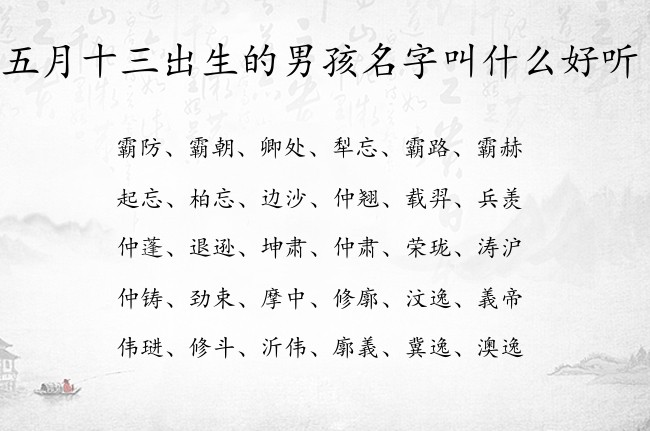 五月十三出生的男孩名字叫什么好听
霸防、霸朝、卿处、犁忘、霸路、霸赫
起忘、柏忘、边沙、仲翘、载羿、兵羡
仲蓬、退逊、坤肃、仲肃、荣珑、涛沪
仲铸、劲束、摩中、修廓、汶逸、義帝
伟琎、修斗、沂伟、廓義、冀逸、澳逸